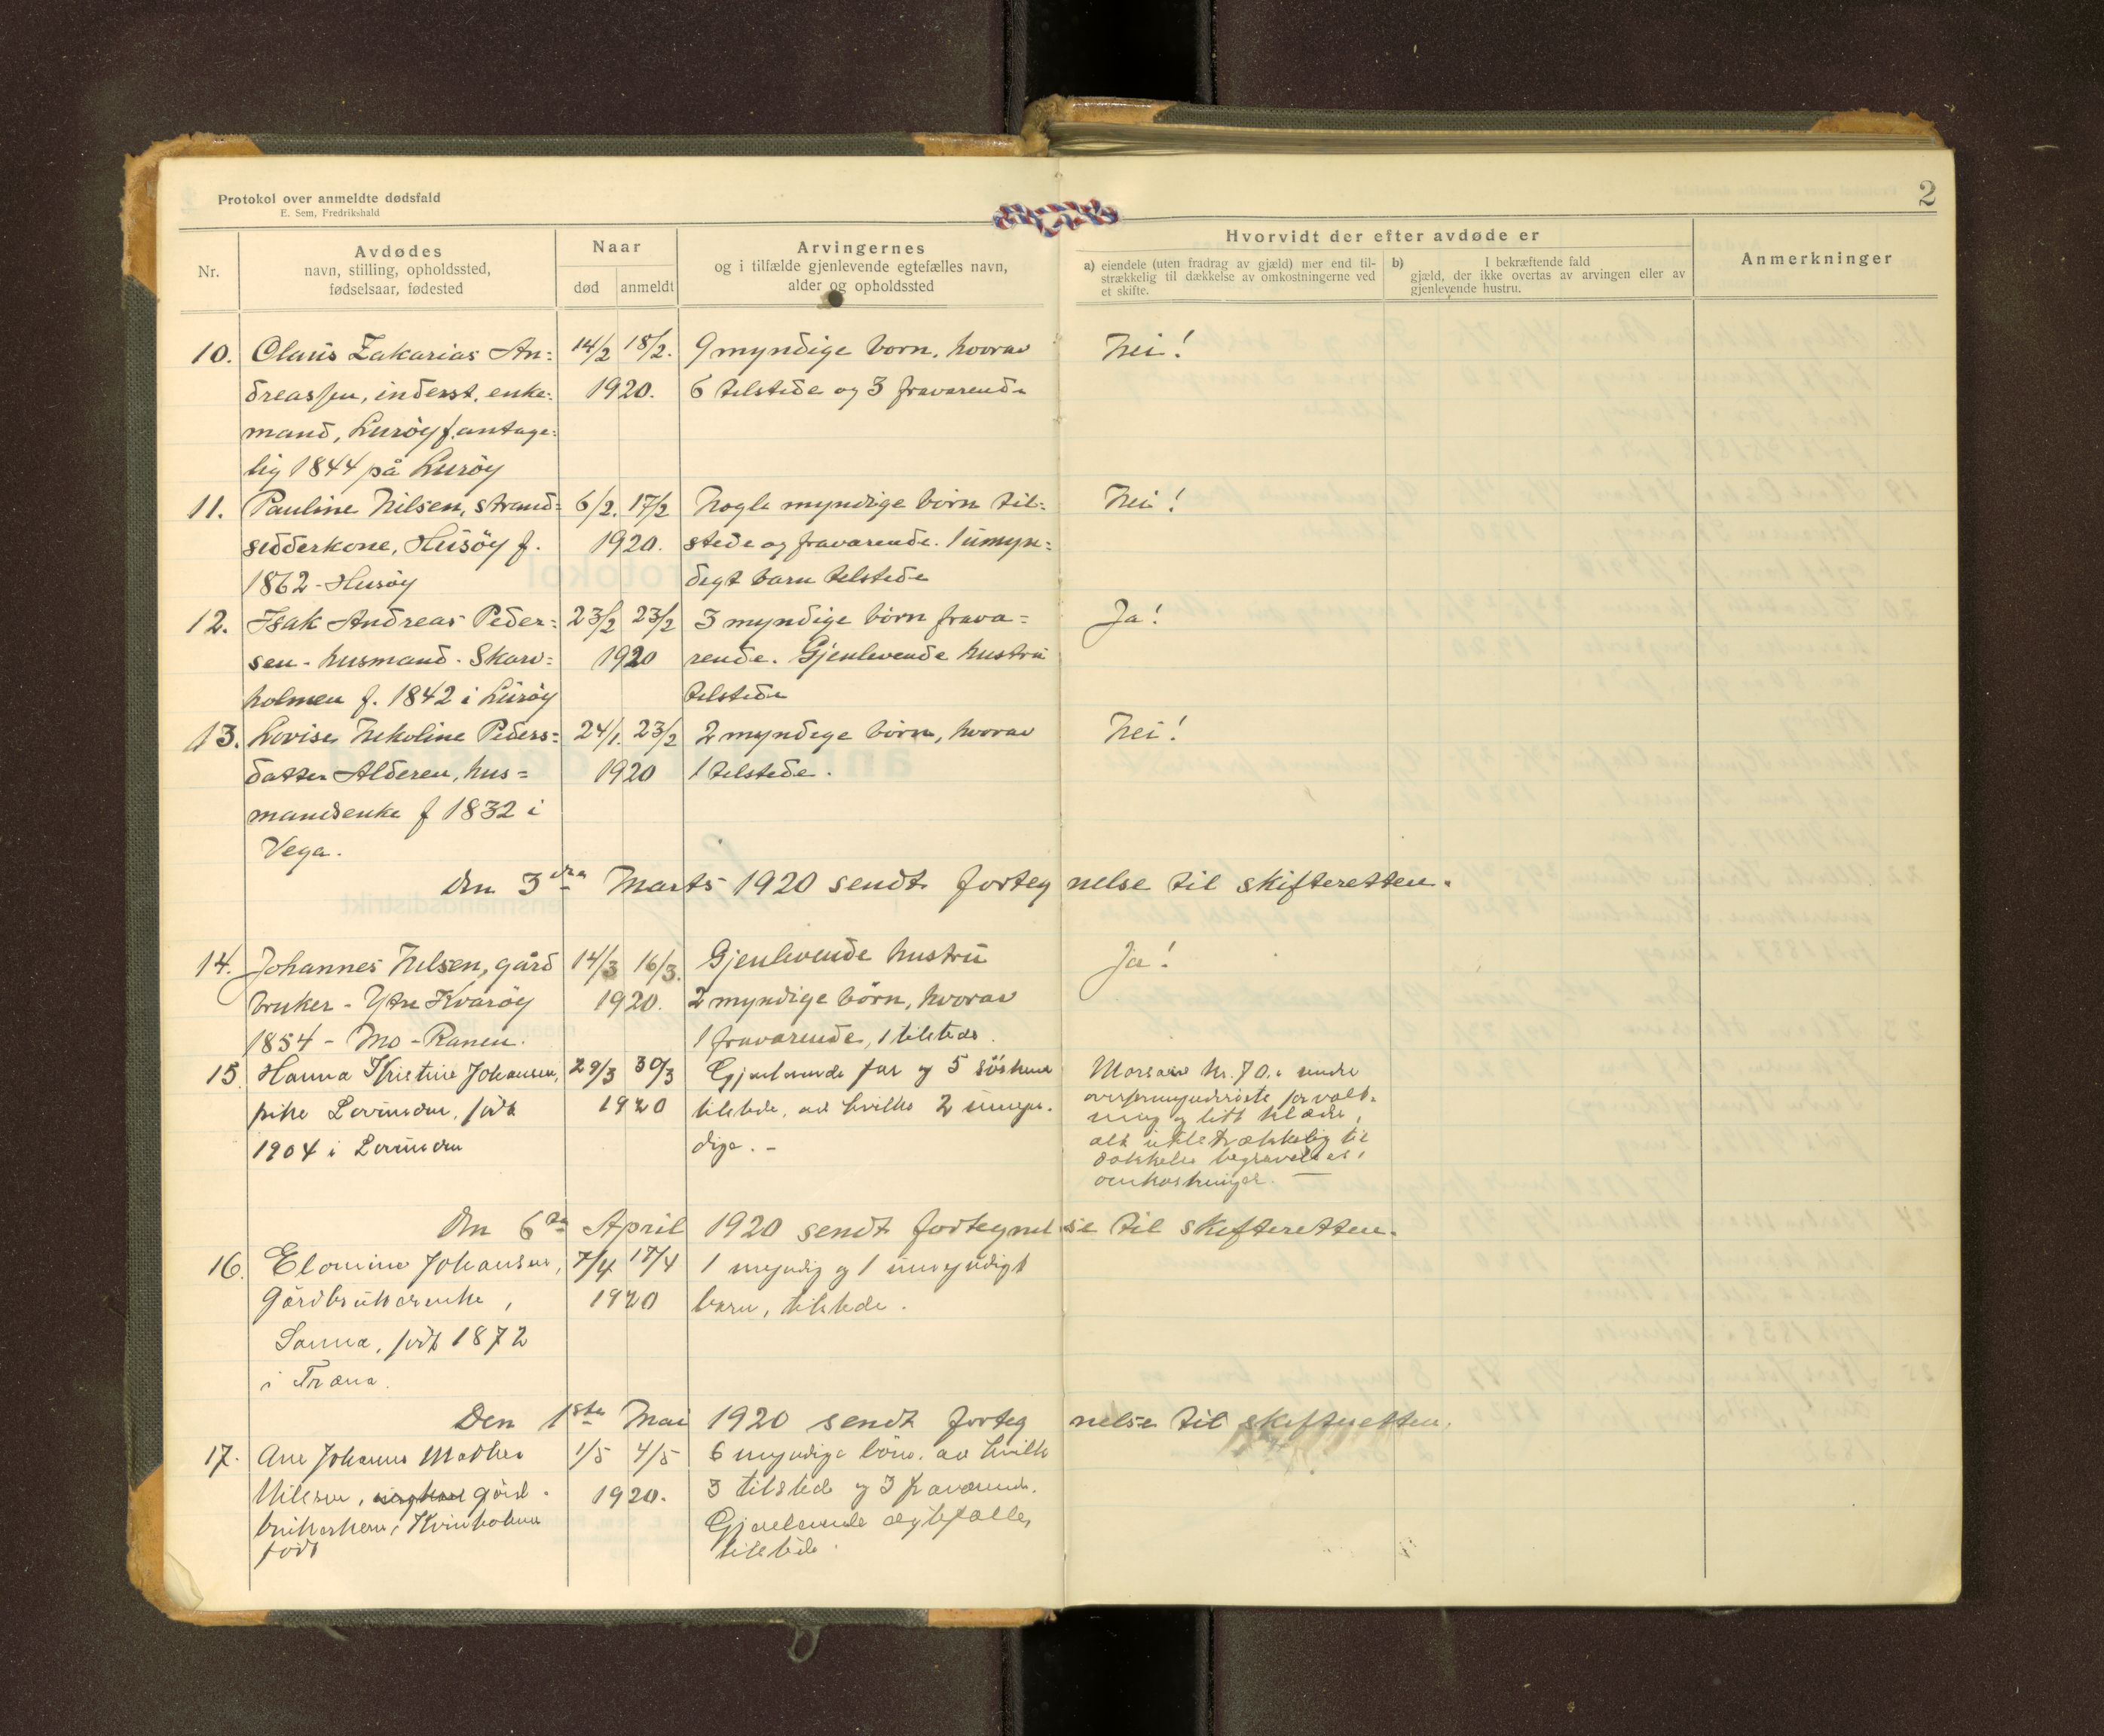 Protokol over anmeldte dødsfald
E. Sem, Fredrikshald
2
Nr.
Avdødes
navn, stilling, opholdssted,
fødselsaar, fødested
Naar
død
anmeldt
Arvingernes
og i tilfælde gjenlevende egtefælles navn,
alder og opholdssted
Hvorvidt der efter avdøde er
a) eiendele (uten fradrag av gjæld) mer end til-
strækkelig til dækkelse av omkostningerne ved
et skifte.
b) I bekræftende fald
gjæld, der ikke overtas av arvingen eller av
gjenlevende hustru.
Anmerkninger
10. Claus Zakarias An= 14/2 18/2. 9 myndige born, hvorav Nei!
dreassen, inderst, enke= 1920. 6 tilstede og 3 fraværende
mand, Lurøy f. antage=
lig 1844 på Lurøy
11. Pauline Nilsen, strand= 6/2. 17/2 Nogle myndige børn til= Nei!
sidderkone, Husöy f. 1920. stede og fraværende. 1 umyn=
1862 - Husøy digt barn tilstede
12. Isak Andreas Peder= 23/2 23/2 3 myndige börn fravæ= Ja!
sen - husmand - Skarv= 1920 rende. Gjenlevende hustru
holmen f. 1842 i Luröy tilstede
13. Lovise Nekoline Peders= 24/1. 23/2 2 myndige börn, hvorav Nei!
datter Alderen, hus= 1920 1 tilstede.
mandsenke f 1832 i
Vega.
Den 3dra Marts 1920 sendt fortegnelse til skifteretten.
14. Johannes Nilsen, gård 14/3 16/3. Gjenlevende hustru Ja!
bruker - Ytre Kvaröy 1920. 2 myndige börn, hvorav
1854 - Mo - Ranen. 1 fraværende, 1 tilstede.
15. Hanna Kristine Johansen, 29/3 30/3 Gjenlevende far og 5 söskend
pike Lovunden, födt 1920 tilstede, av hvilke 2 umyn-
1904 i Lovunden dige. -
Morsarv kr. 70. i under
overformynderiets forvalt-
ning og litt klæder,
alt utilstrækkelig til
dækkelse begravelses,
omkostninger. -
Den 6te April 1920 sendt fortegnelse til skifteretten.
16. Elomine Johansen, 7/4 17/4 1 myndig og 1 umyndigt
Gårdbrukerenke, 1920 barn, tilstede.
Sanna, födt 1872
i Træna.
Den 1ste Mai 1920 sendt fortegnelse til skifteretten.
17. Ane Johanna Mathea 1/5 4/5 6 myndige börn, av hvilke
Nilsen, gård- 1920. 3 tilstede og 3 fraværende.
brukerkone, Kvinholmen Gjenlevende ægtefælle,
födt tilstede.